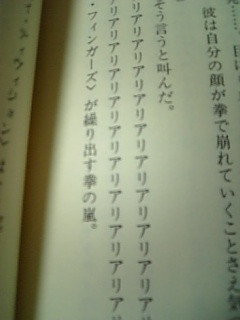 彼は自分の顔が拳で崩れていくことさえ気
そう言うと叫んだ。
リアリアリアリアリアリアリアリアリアリアリ
リアリアリアリアリアリアリアリアリアリアリ
・フィンガーズ〉が繰り出す拳の嵐。